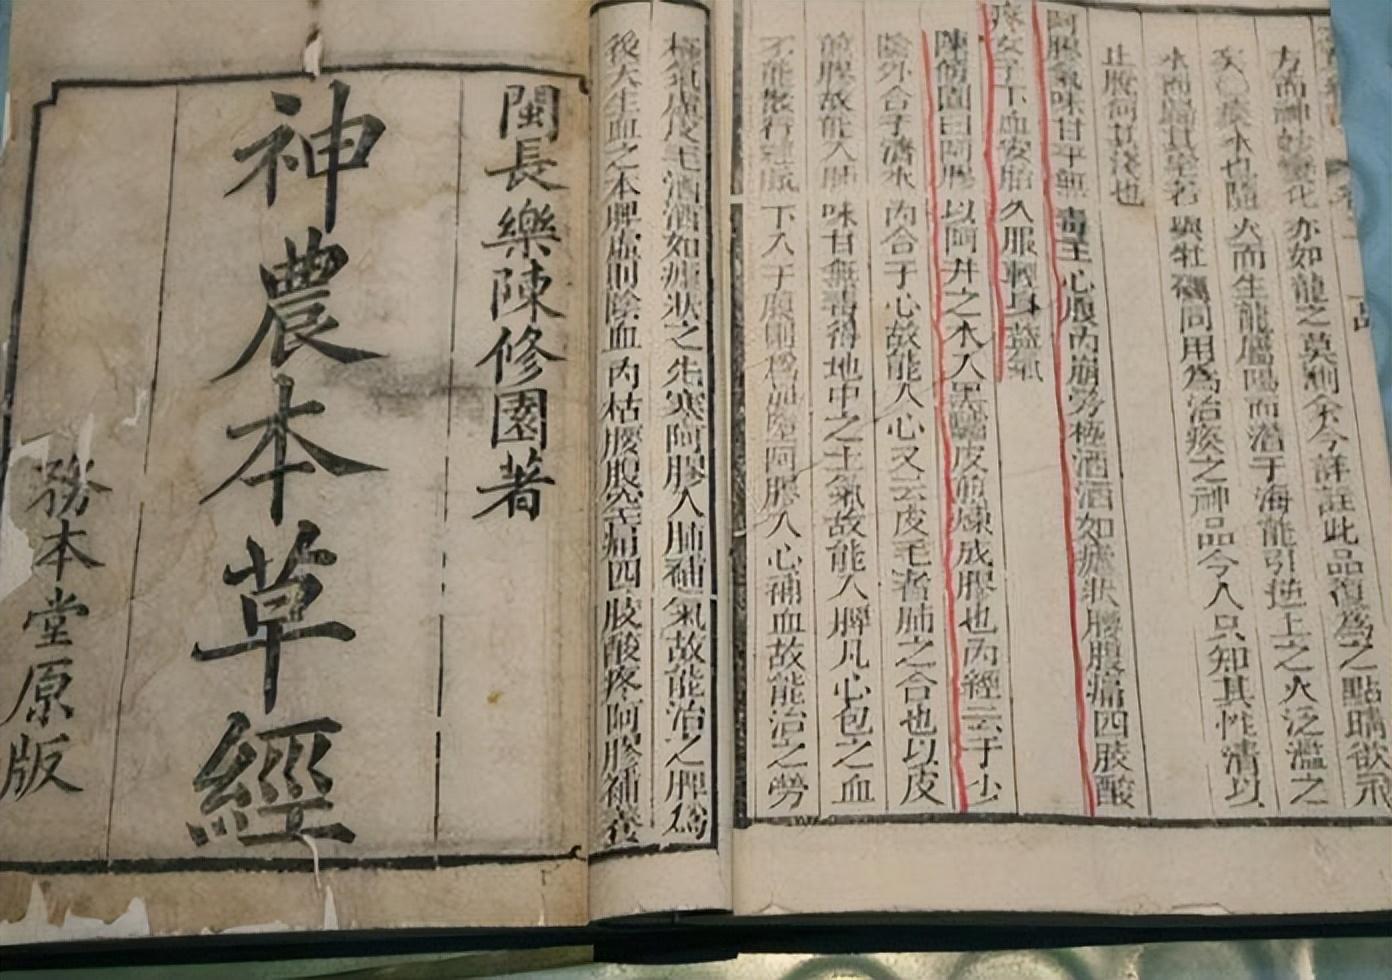 方而神妙變化亦如龍之莫測余今詳註此品復為之點睛欲飛
矣○痰水也隨火而生龍屬陽而潛于海能引逆上之火泛濫之
水而歸其宅若與牡蠣同用為治痰之神品今人只知其性濇以
止脫何其淺也
阿膠氣味甘平無毒主心腹內崩勞極洒洒如瘧狀腰腹痛四肢酸
疼女子下血安胎久服輕身益氣
陳修園曰阿膠以阿井之水入黑驢皮煎煉成膠也內經云手少
陰外合于濟水內合于心故能入心又云皮毛者肺之合也以皮
煎膠故能入肺味甘無毒得地中之土氣故能入脾凡心包之血
不能散行經脈下入于腹則為崩墮阿膠入心補血故能治之勞
極氣虛皮毛洒洒如瘧狀之先寒阿膠入肺補氣故能治之脾為
後天生血之本脾虛則陰血內枯腰腹空痛四肢酸疼阿膠補養
閩長樂陳修園著
神農本草經
務本堂原版